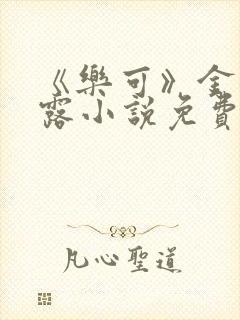 《樂可》金
露小說免費
凡心聖道